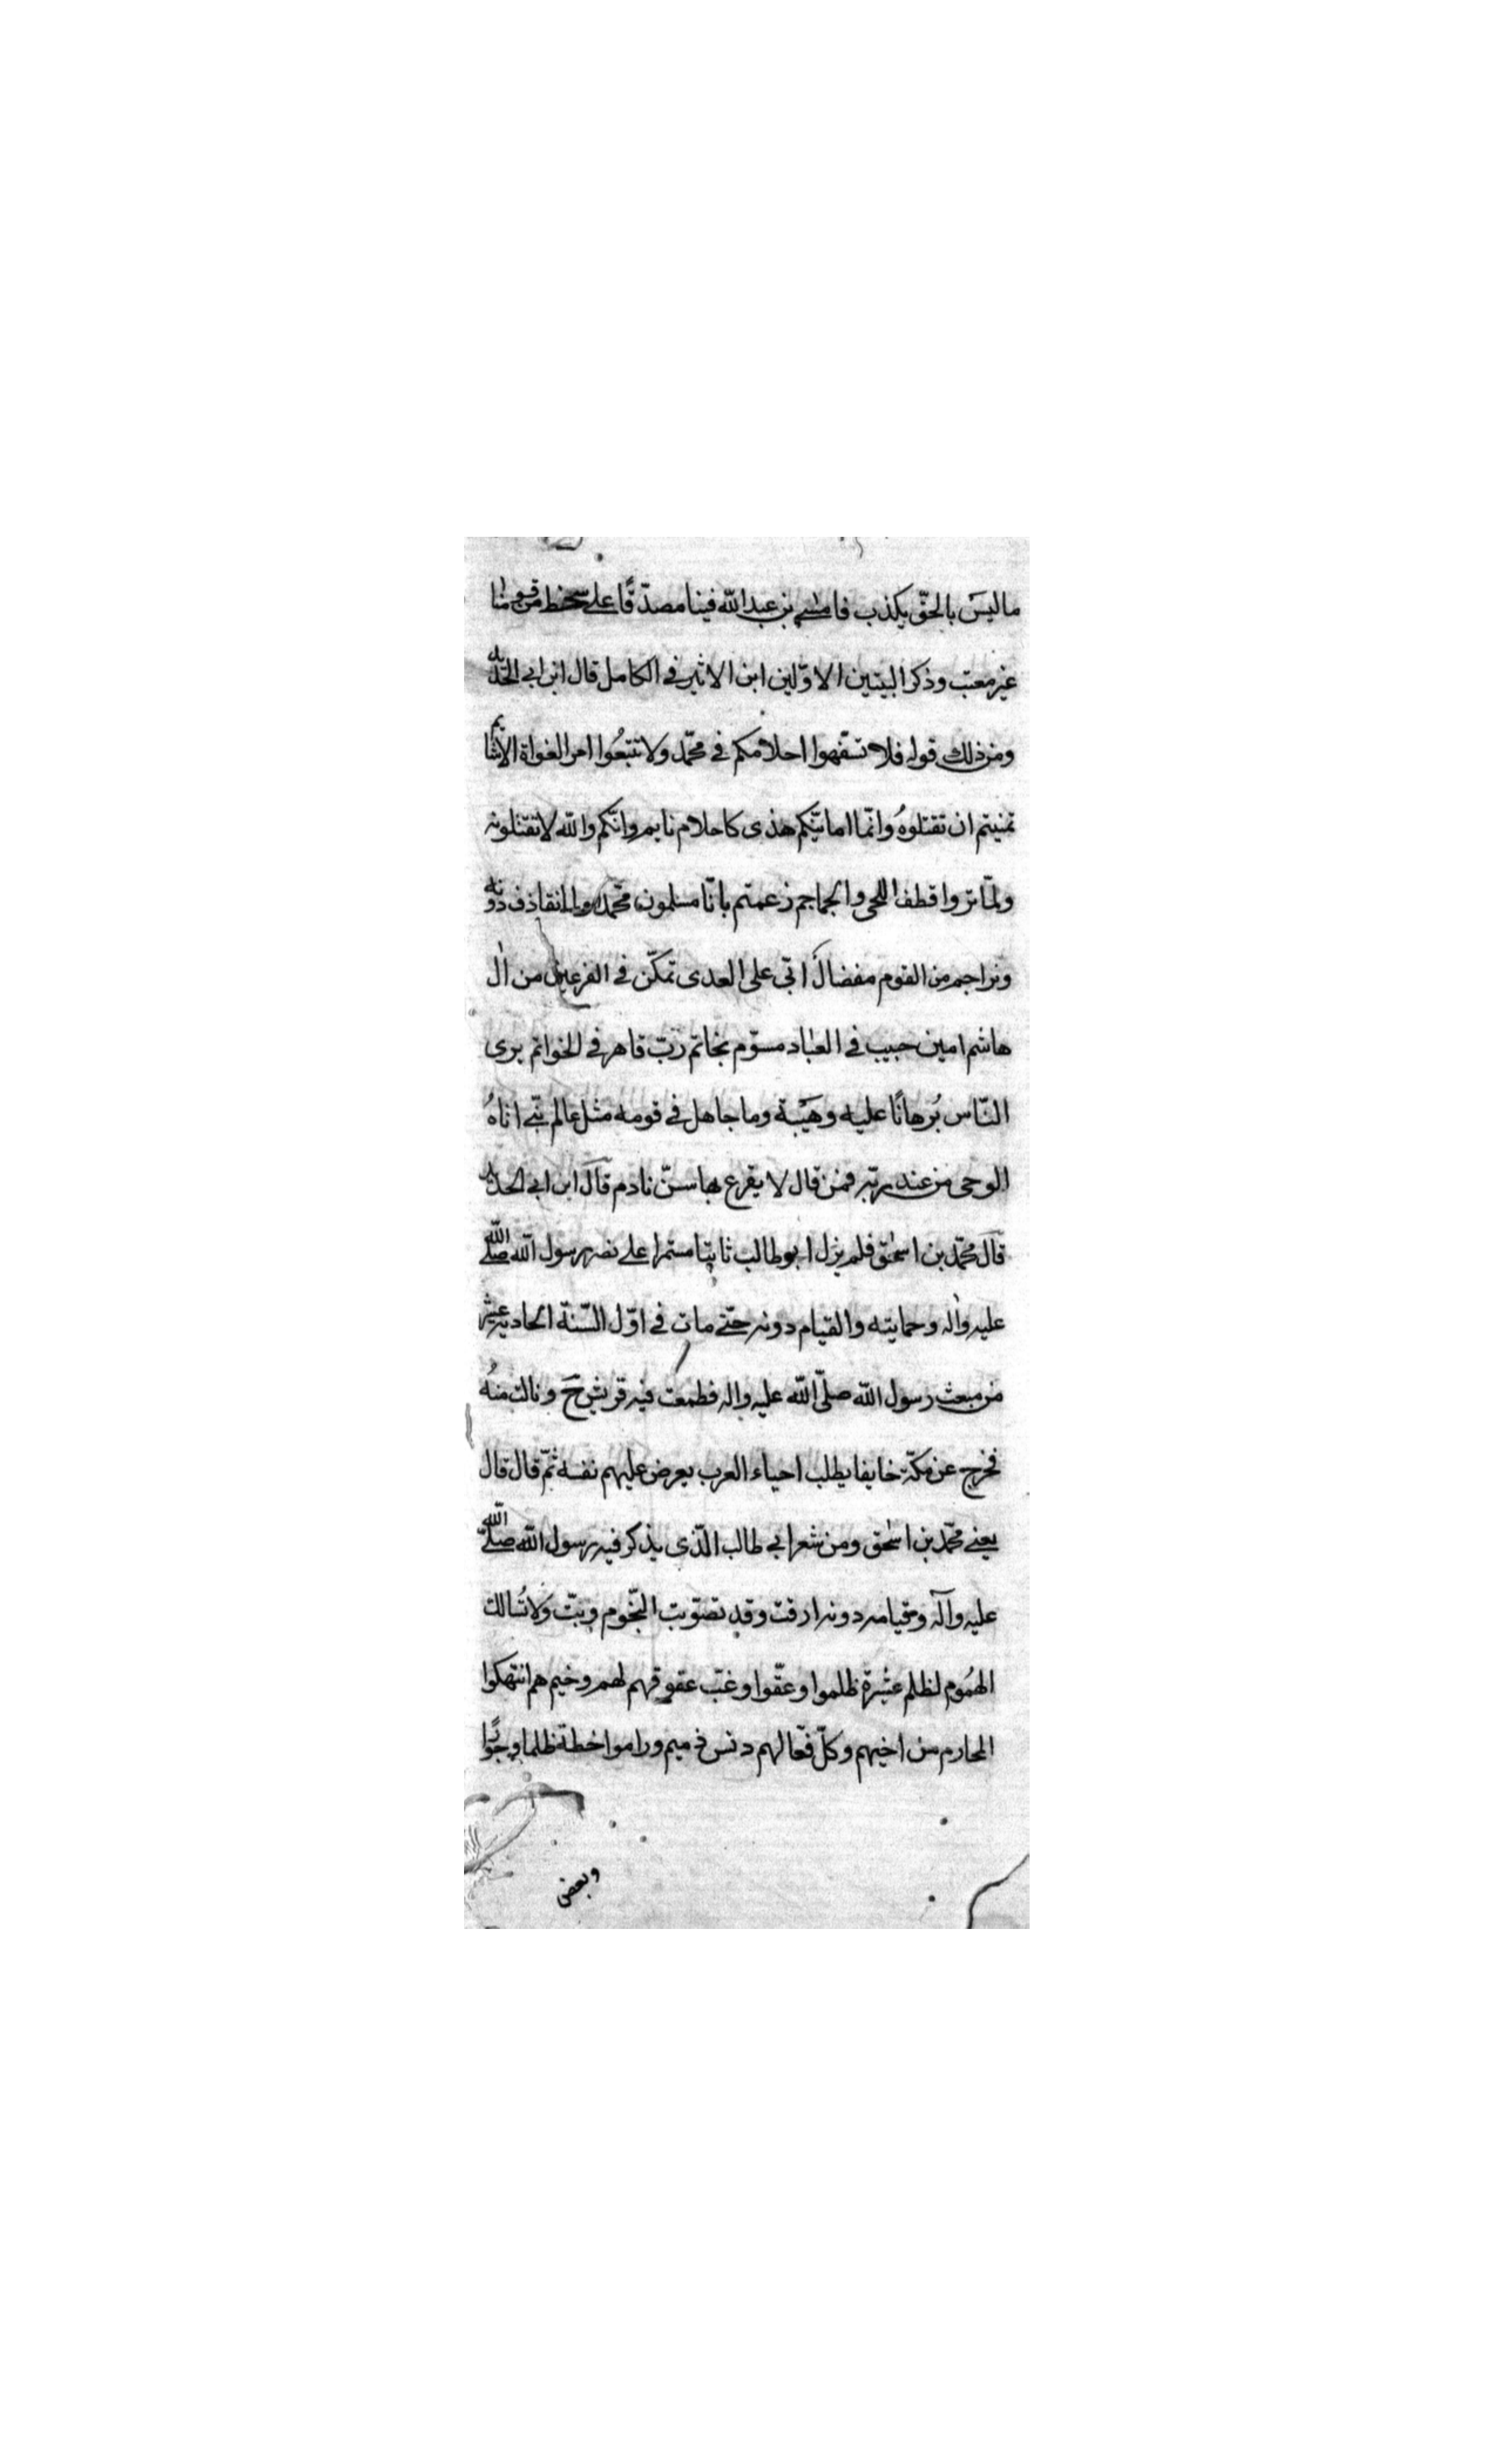 ما ليس بالحقّ يكذب فامسى بن عبد الله فينا مصدّقًا على سخط من قومنا
غير معتب وذكر البيتين الاوّلين ابن الاثير في الكامل قال ابن ابي الحديد
ومن ذلك قوله فلا تسفّهوا احلامكم في محمّد ولا تتبعُوا امر الغواة الاشايم
تمنيتم ان تقتلوهُ وانّما امانيّكم هذى كاحلام نايم وانّكم والله لا تقتلونه
ولمّا تروا قطف اللحى والجماجم زعمتم بانّا مسلمون محمّدا ولما نقاذف دونه
ونراجم من القوم مفضال اتى على العدى تمكّن في الفرعين من اٰل
هاشم امين حبيب في العباد مسوّم بخاتم ربّ قاهر في الخواتم يرى
النّاس بُرهانًا عليه وهَيْبة وما جاهل في قومه مثل عالم نبى اتاهُ
الوحى من عند ربّه فمن قال لا يقرع بها سنّ نادم قال ابن ابى الحديد
قال محمّد بن اسحٰق فلم يزل ابو طالب ثابتا مستمرا على نصر رسول الله صلّى الله
عليه واٰله وحمايته والقيام دونه حتّى مات في اوّل السّنة الحادية عشر
من مبعث رسول الله صلّى الله عليه واله فطمعت فيه قريش حَ ونالت منهُ
فخرج عن مكّة خايفا يطلب احياء العرب يعرض عليهم نفسه ثمّ قال قال
يعنى محمّد بن اسحٰق ومن شعر ابى طالب الّذى يذكر فيه رسول الله صلّى الله
عليه وآله وقيامه دونه ارقت وقد تصوّبت النّجوم وبتّ ولا تُسالك
الهمُوم لظلم عشيرة ظلموا وعقّوا وغبّ عقوقهم لهم وخيم هم انتهكوا
المحارم من اخيهم وكلّ فعالهم دنس ذميم وراموا خطة ظلما وجورًا
وبعض